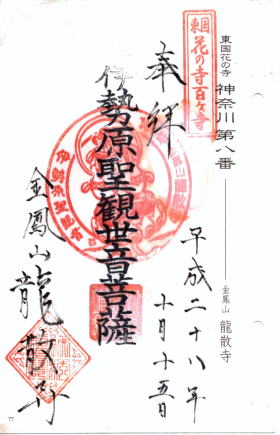 東国花の寺 神奈川 第八番
金鳳山 龍散寺
東国
花の寺百ヶ寺
奉拝
平成二十八年
十月十五日
伊勢原聖観世音菩薩
金鳳山龍散寺
77